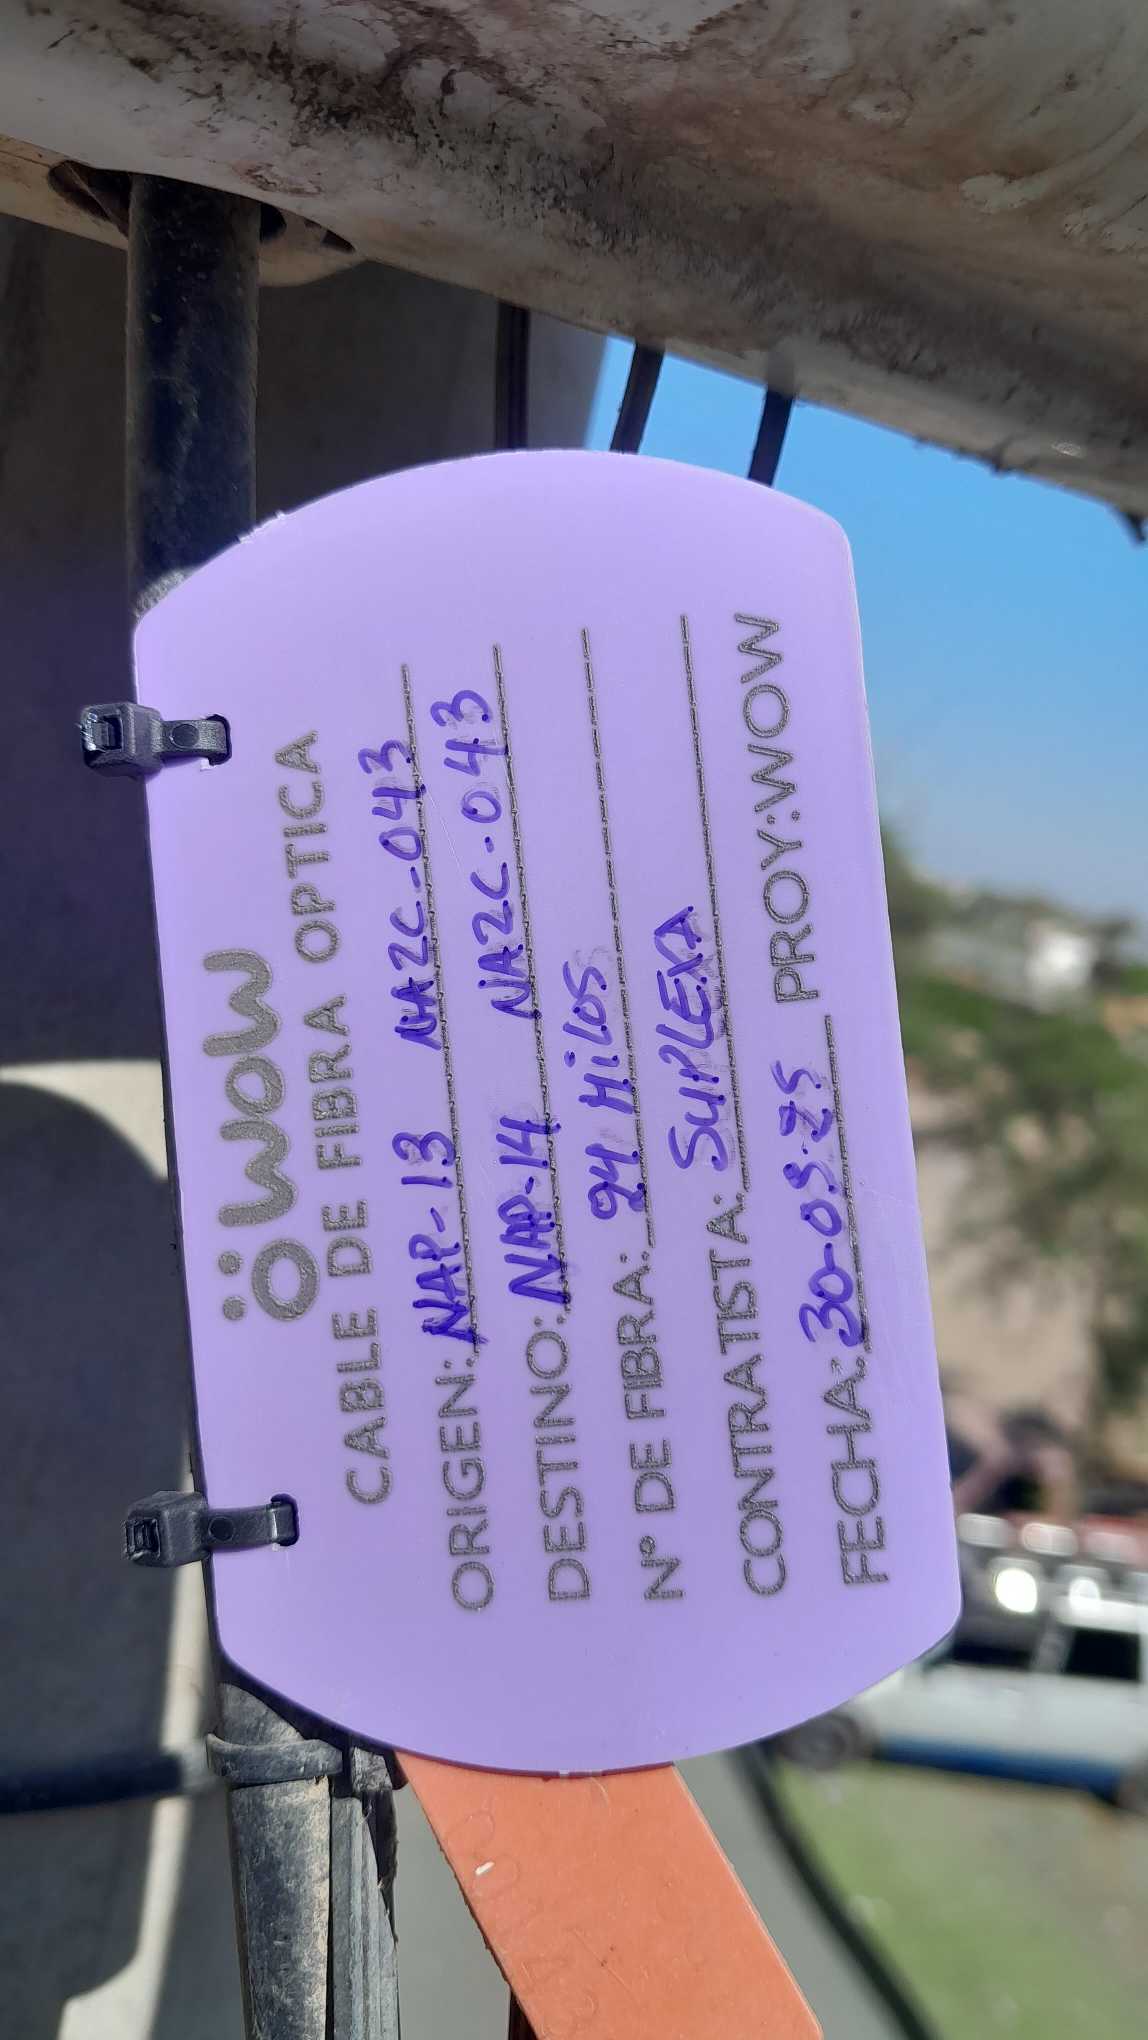 ÖWOW
CABLE DE FIBRA OPTICA
ORIGEN: NAP-13 NAZC-043
DESTINO: NAP-14 NAZC-043
N° DE FIBRA: 24 Hilos
CONTRATISTA: SUPLEXA
FECHA: 30-05-25 PROY:WOW